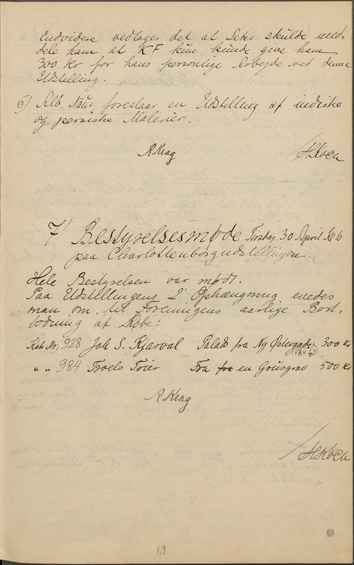 Endvidere vedtoges det at Sekr. skulde med-
dele ham at KF kun kunde give ham
300 Kr for hans personlige Arbejde ved denne
Udstilling.
6) Alb. foreslaar en Udstilling af indiske
og persiske Malerier.
A Krag
7 Bestyrelsesmøde Tirsdag 30 April
paa Charlottenborgudstillingen.
Hele Bestyrelsen var mødt.
Paa Udstillingens 2' Ophængning enedes
man om til Foreningens aarlige Bort-
lodning af Købe:
Kat. Nr. 928 Joh S. Kjarval fra Ny 300 Kr
" " 984 Troels Trier Fra en Grusgrav 500 Kr
A Krag